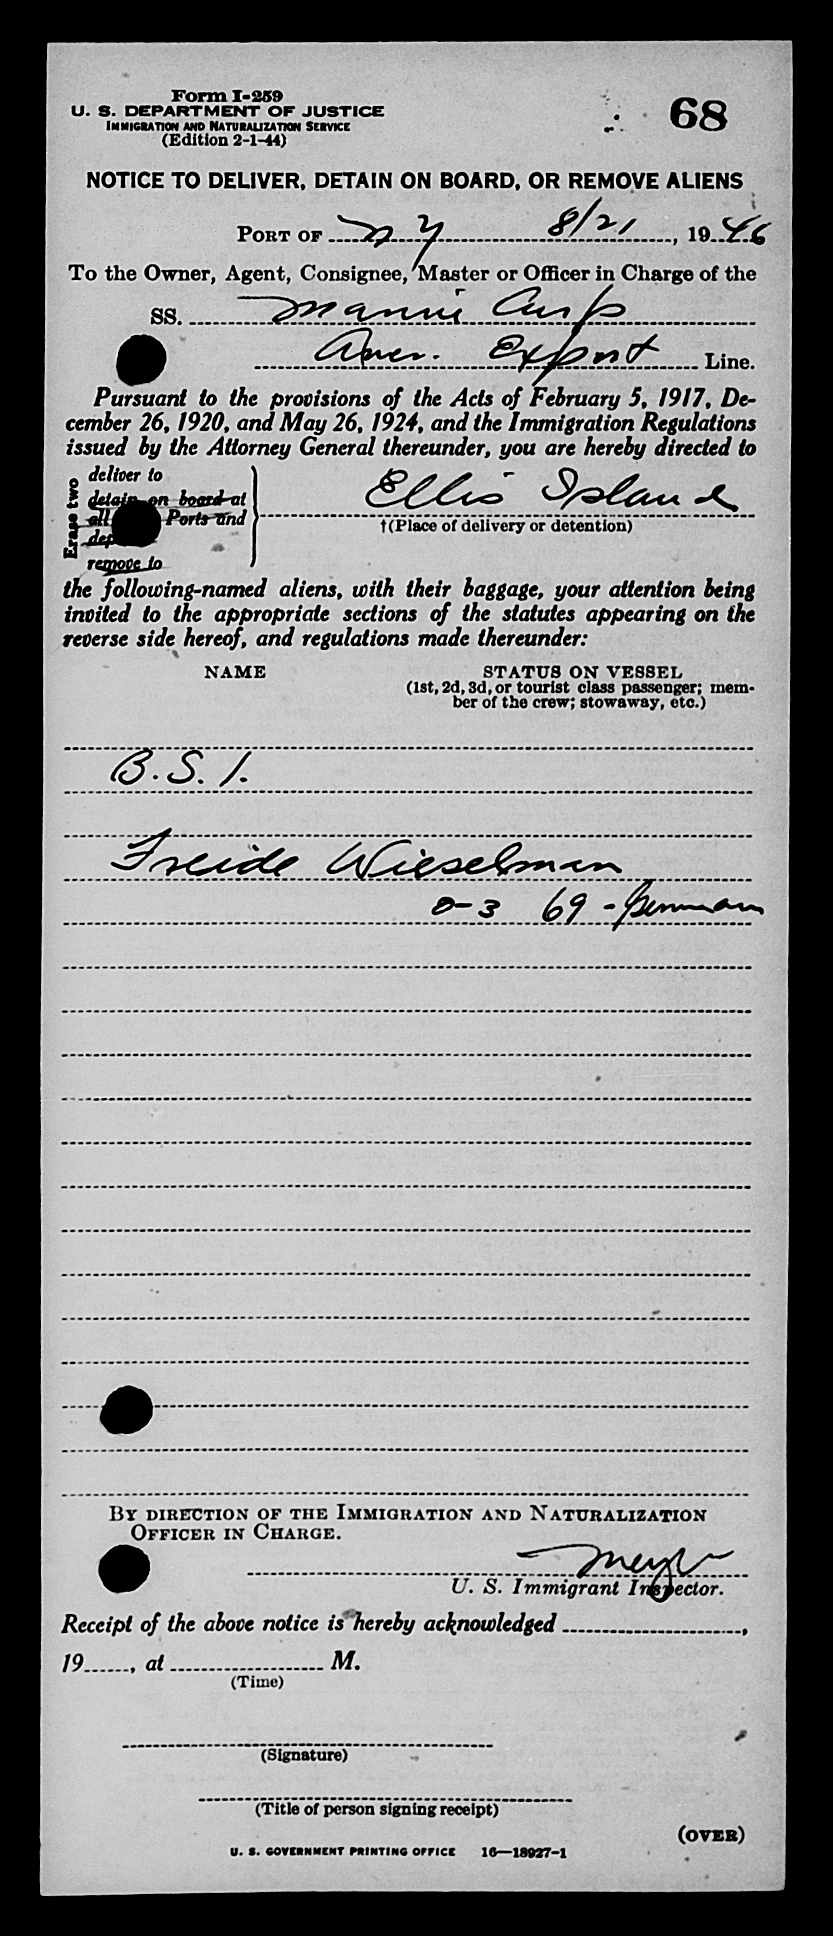 Form I-259
U. S. DEPARTMENT OF JUSTICE
IMMIGRATION AND NATURALIZATION SERVICE
(Edition 2-1-44)
68
NOTICE TO DELIVER, DETAIN ON BOARD, OR REMOVE ALIENS
PORT OF NY 8/21, 1946
To the Owner, Agent, Consignee, Master or Officer in Charge of the
SS. Marine
Amer. Export Line.
Pursuant to the provisions of the Acts of February 5, 1917, De-
cember 26, 1920, and May 26, 1924, and the Immigration Regulations
issued by the Attorney General thereunder, you are hereby directed to
Erase two
deliver to
detain on board at
all Ports and
remove to
Ellis Island
†(Place of delivery or detention)
the following-named aliens, with their baggage, your attention being
invited to the appropriate sections of the statutes appearing on the
reverse side hereof, and regulations made thereunder:
NAME STATUS ON VESSEL
(1st, 2d, 3d, or tourist class passenger; mem-
ber of the crew; stowaway, etc.)
B. S. I.
Freide Wieselman
0-3 69 - German
BY DIRECTION OF THE IMMIGRATION AND NATURALIZATION
OFFICER IN CHARGE.
Meyer
U. S. Immigrant Inspector.
Receipt of the above notice is hereby acknowledged ,
19 , at M.
(Time)
(Signature)
(Title of person signing receipt)
(OVER)
U. S. GOVERNMENT PRINTING OFFICE 16—18927-1